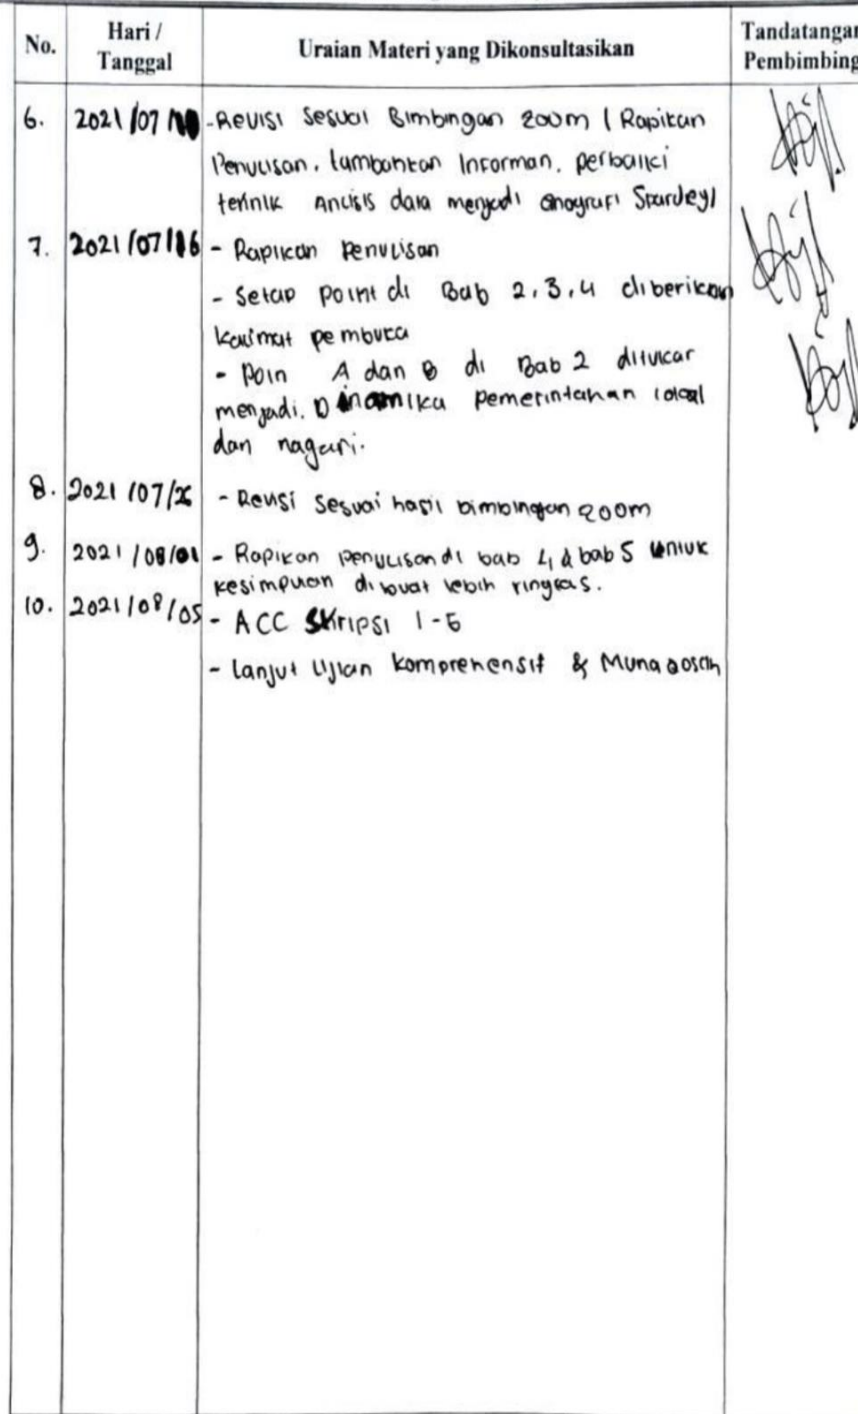 No. Hari / Tanggal Uraian Materi yang Dikonsultasikan Tandatangan Pembimbing
6. 2021/07/ - Revisi Sesuai Bimbingan zoom ( Rapikan
Penulisan, tambahkan Informan, perbaiki
teknik Analisis data menjadi Spardley)
7. 2021/07/16 - Rapikan Penulisan
- Setiap point di Bab 2,3,4 diberikan
kalimat pembuka
- Poin A dan B di Bab 2 ditukar
menjadi. Dinamika pemerintahan lokal
dan nagari.
8. 2021/07/26 - Revisi Sesuai hasil bimbingan zoom
9. 2021/08/01 - Rapikan penulisan di bab 4 & bab 5 untuk
kesimpulan dibuat lebih ringkas.
10. 2021/08/05 - ACC Skripsi 1-5
- Lanjut Ujian Komprehensif & Munaqosah